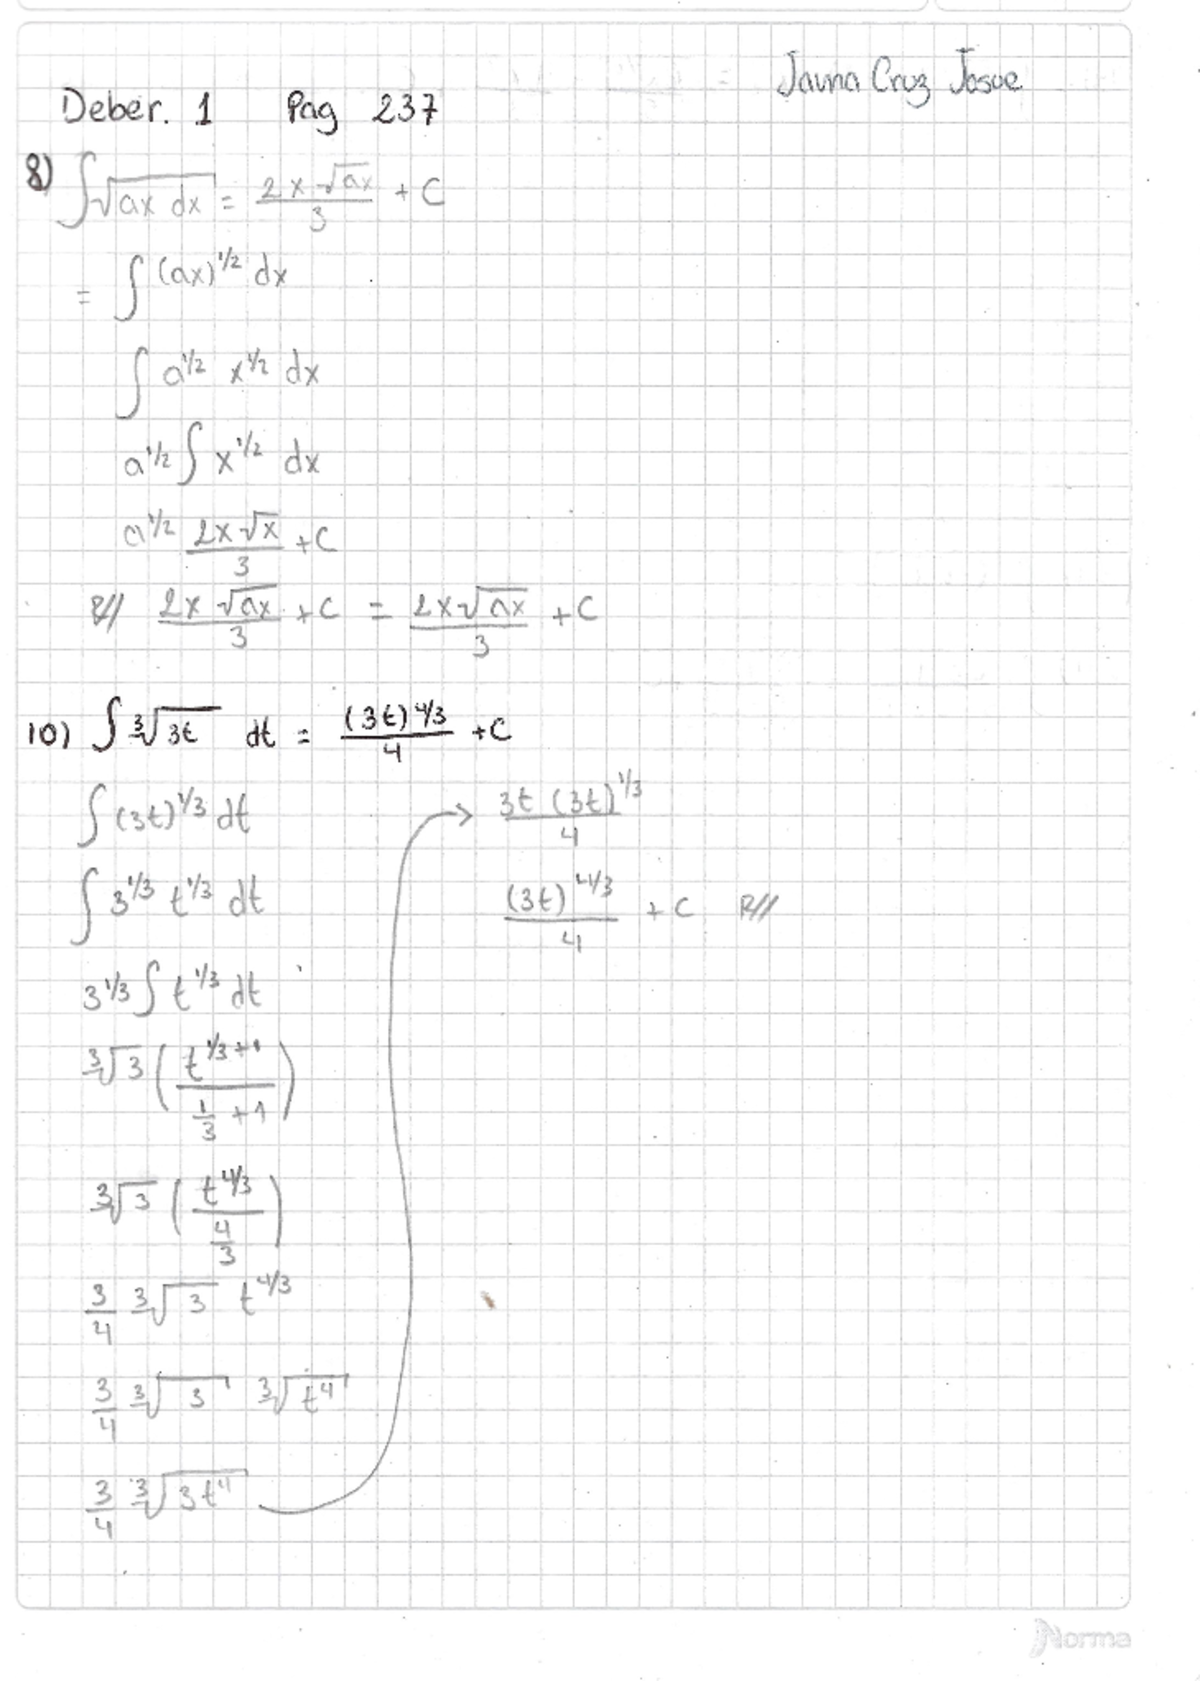 Jauna Cruz Josue
Deber. 1 Pag 237
8) ∫√(ax dx) = (2x √(ax))/3 + C
= ∫ (ax)^1/2 dx
∫ a^1/2 x^1/2 dx
a^1/2 ∫ x^1/2 dx
a^1/2 (2x √x)/3 + C
R// (2x √(ax))/3 + C = (2x √(ax))/3 + C
10) ∫ ∛(3t) dt = ((3t)^4/3)/4 + C
∫ (3t)^1/3 dt
∫ 3^1/3 t^1/3 dt
3^1/3 ∫ t^1/3 dt
∛3 ( (t^1/3+1) / (1/3 + 1) )
∛3 ( (t^4/3) / (4/3) )
3/4 ∛3 t^4/3
3/4 ∛3 ∛(t^4)
3/4 ∛(3t^4)
(3t (3t)^1/3)/4
((3t)^4/3)/4 + C R//
Norma